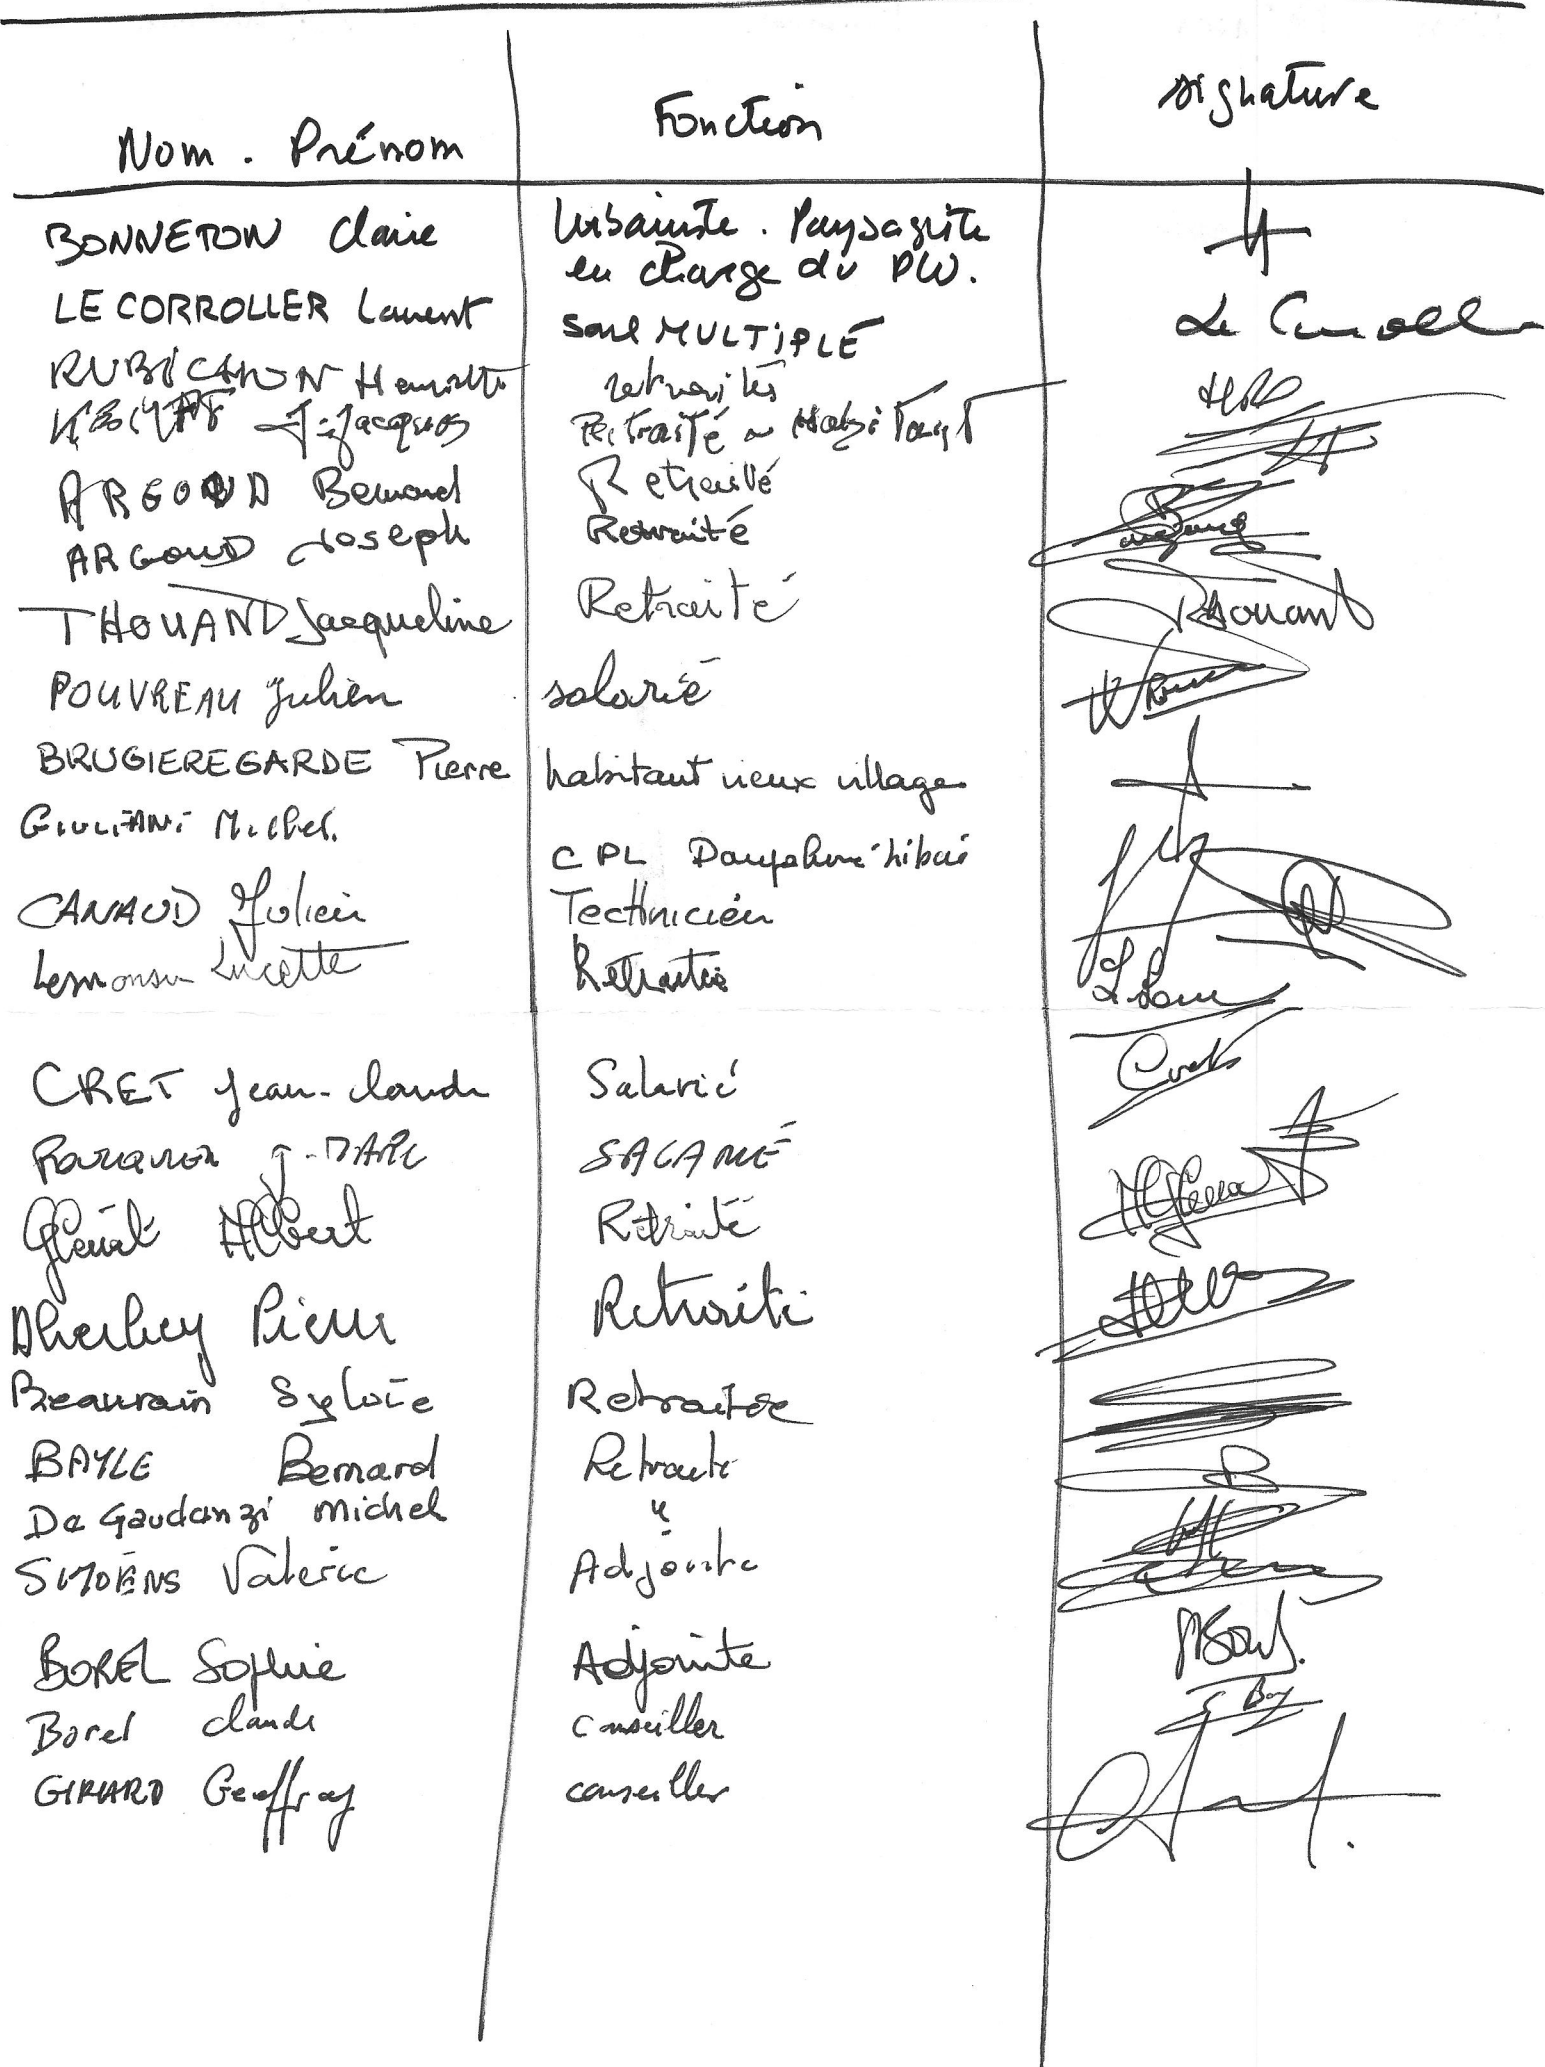 Nom. Prénom Fonction signature
BONNETON Claire Urbaniste. Paysagiste
en charge du PLU.
LE CORROLLER Laurent Sarl MULTIPLE
RUBICHON Henriette retraités
J-Jacques Retraité Habitant
ARGOUD Bernard Retraité
ARGOUD Joseph Retraité
THOUAND Jacqueline Retraité Thouand
POUVREAU Julien salarié
BRUGIEREGARDE Pierre habitant vieux village
GIULIANI Michel. CPL Dauphiné Libéré
CANAUD Julien Technicien
Lucette Retraitée
CRET Jean-Claude Salarié Cret
J-MARC SALARIÉ
Glénat Albert Retraité
Dherbey Pierre Retraité
Beaurain Sylvie Retraitée
BAYLE Bernard Retraité
De Gaudanzi Michel "
SIMOENS Valérie Adjointe
BOREL Sophie Adjointe
Borel Claude conseiller
GIRARD Geoffray conseiller